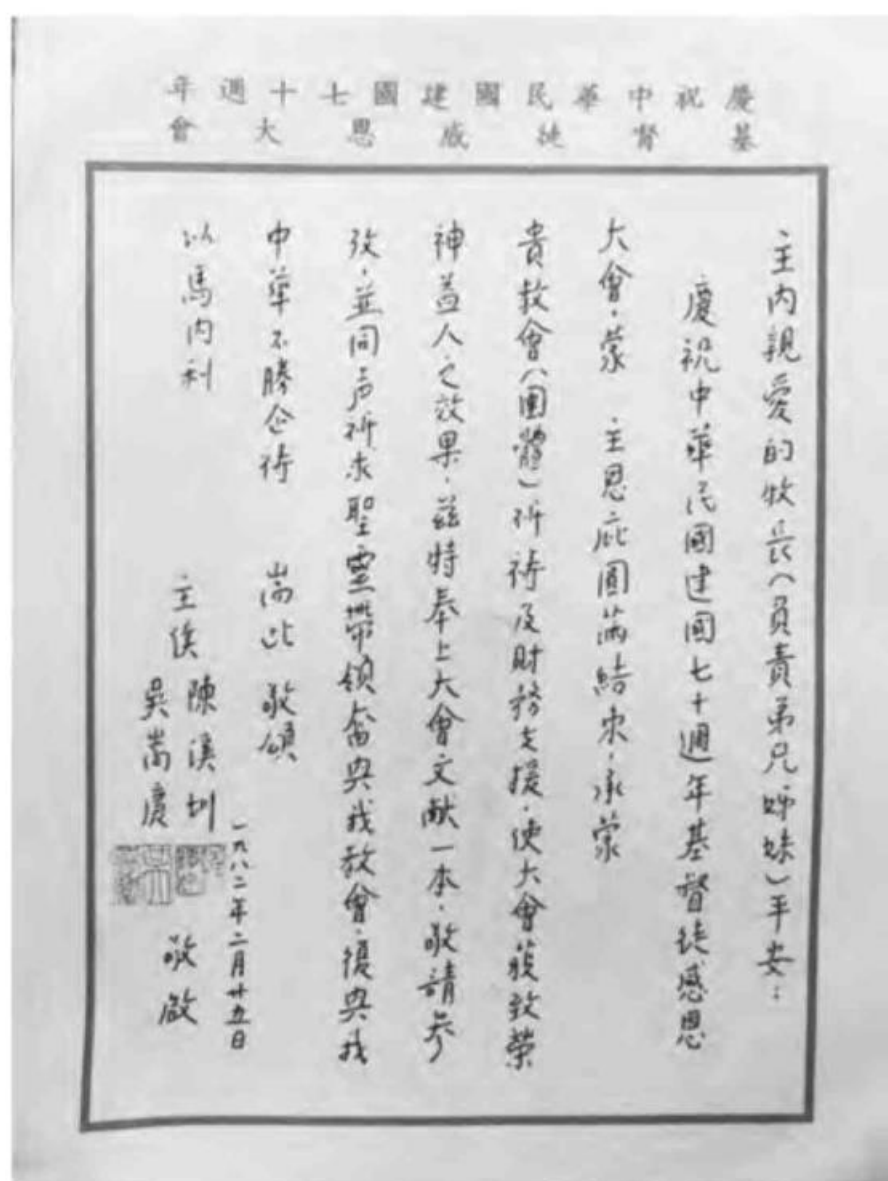 慶祝中華民國建國七十週年
基督徒感恩大會
主內親愛的牧長(負責弟兄姊妹)平安:
慶祝中華民國建國七十週年基督徒感恩
大會,蒙 主恩庇圓滿結束,承蒙
貴教會(團體)祈祷及財務支援,使大會獲致榮
神益人之效果,茲特奉上大會文献一本,敬請參
攷,並同声祈求聖靈帶領奮興我教會,復興我
中華不勝企祷 耑此 敬頌
以馬內利
主僕 陳溪圳
吳嵩慶 敬啟
一九八二年二月廿五日